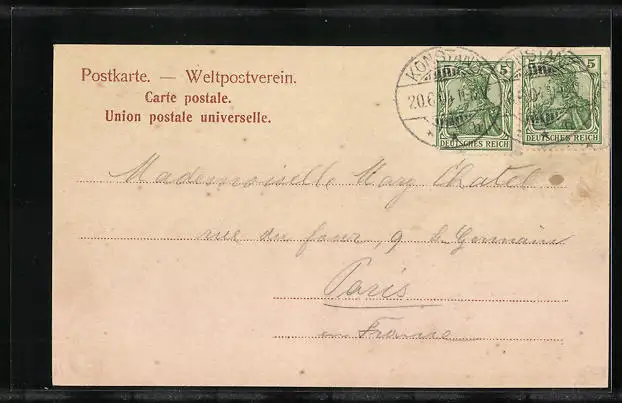 Postkarte. — Weltpostverein.
Carte postale.
Union postale universelle.
KONSTANZ
20.6.
5
DEUTSCHES REICH
5
DEUTSCHES REICH
Mademoiselle Mary Chatel
rue du four, 9 St Germain
Paris
en France